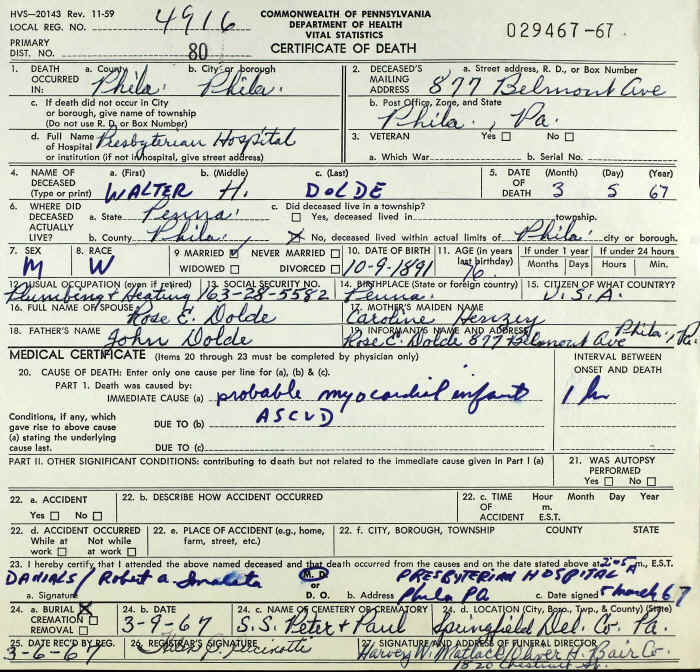 HVS—20143 Rev. 11-59
LOCAL REG. NO. 4916
COMMONWEALTH OF PENNSYLVANIA
DEPARTMENT OF HEALTH
VITAL STATISTICS
CERTIFICATE OF DEATH
029467-67
PRIMARY
DIST. NO. 80
1. DEATH OCCURRED IN: a. County Phila. b. City or borough Phila.
c. If death did not occur in City
or borough, give name of township
(Do not use R. D. or Box Number)
d. Full Name of Hospital Presbyterian Hospital
or institution (if not in hospital, give street address)
2. DECEASED'S MAILING ADDRESS a. Street address, R. D., or Box Number
877 Belmont Ave
b. Post Office, Zone, and State
Phila., Pa.
3. VETERAN Yes No
a. Which War b. Serial No.
4. NAME OF DECEASED (Type or print) a. (First) b. (Middle) c. (Last)
WALTER H. DOLDE
5. DATE OF DEATH (Month) (Day) (Year)
3 5 67
6. WHERE DID DECEASED ACTUALLY LIVE? a. State Penna.
b. County Phila.
c. Did deceased live in a township?
Yes, deceased lived in township.
No, deceased lived within actual limits of Phila. city or borough.
7. SEX M
8. RACE W
9 MARRIED NEVER MARRIED
WIDOWED DIVORCED
10. DATE OF BIRTH 10-9-1891
11. AGE (in years last birthday) 76
If under 1 year Months Days
If under 24 hours Hours Min.
12. USUAL OCCUPATION (even if retired) Plumbing & Heating
13. SOCIAL SECURITY NO. 163-28-5582
14. BIRTHPLACE (State or foreign country) Penna.
15. CITIZEN OF WHAT COUNTRY? U.S.A.
16. FULL NAME OF SPOUSE Rose E. Dolde
17. MOTHER'S MAIDEN NAME Caroline
18. FATHER'S NAME John Dolde
19. INFORMANT'S NAME AND ADDRESS Rose E. Dolde 877 Belmont Ave Phila, Pa.
MEDICAL CERTIFICATE (Items 20 through 23 must be completed by physician only)
INTERVAL BETWEEN ONSET AND DEATH
20. CAUSE OF DEATH: Enter only one cause per line for (a), (b) & (c).
PART 1. Death was caused by:
IMMEDIATE CAUSE (a) probable myocardial infarct 1 hr
Conditions, if any, which gave rise to above cause (a) stating the underlying cause last.
DUE TO (b) ASCVD
DUE TO (c)
PART II. OTHER SIGNIFICANT CONDITIONS: contributing to death but not related to the immediate cause given in Part I (a)
21. WAS AUTOPSY PERFORMED
Yes No
22. a. ACCIDENT
Yes No
22. b. DESCRIBE HOW ACCIDENT OCCURRED
22. c. TIME OF ACCIDENT Hour Month Day Year
m. E.S.T.
22. d. ACCIDENT OCCURRED
While at work Not while at work
22. e. PLACE OF ACCIDENT (e.g., home, farm, street, etc.)
22. f. CITY, BOROUGH, TOWNSHIP COUNTY STATE
23. I hereby certify that I attended the above named deceased and that death occurred from the causes and on the date stated above at 2:05 A m., E.ST.
DANIALS / Robert A. M. D. or D. O. PRESBYTERIAN HOSPITAL
a. Signature b. Address Phila PA c. Date signed 5 March 67
24. a. BURIAL
CREMATION
REMOVAL
24. b. DATE 3-9-67
24. c. NAME OF CEMETERY OR CREMATORY S.S. Peter & Paul
24. d. LOCATION (City, Boro., Twp., & County) (State) Springfield Del. Co. Pa.
25. DATE REC'D BY REG. 3-6-67
26. REGISTRAR'S SIGNATURE
27. SIGNATURE AND ADDRESS OF FUNERAL DIRECTOR
Harvey W. Matlack Oliver H. Bair Co.
1820 Chestnut St.